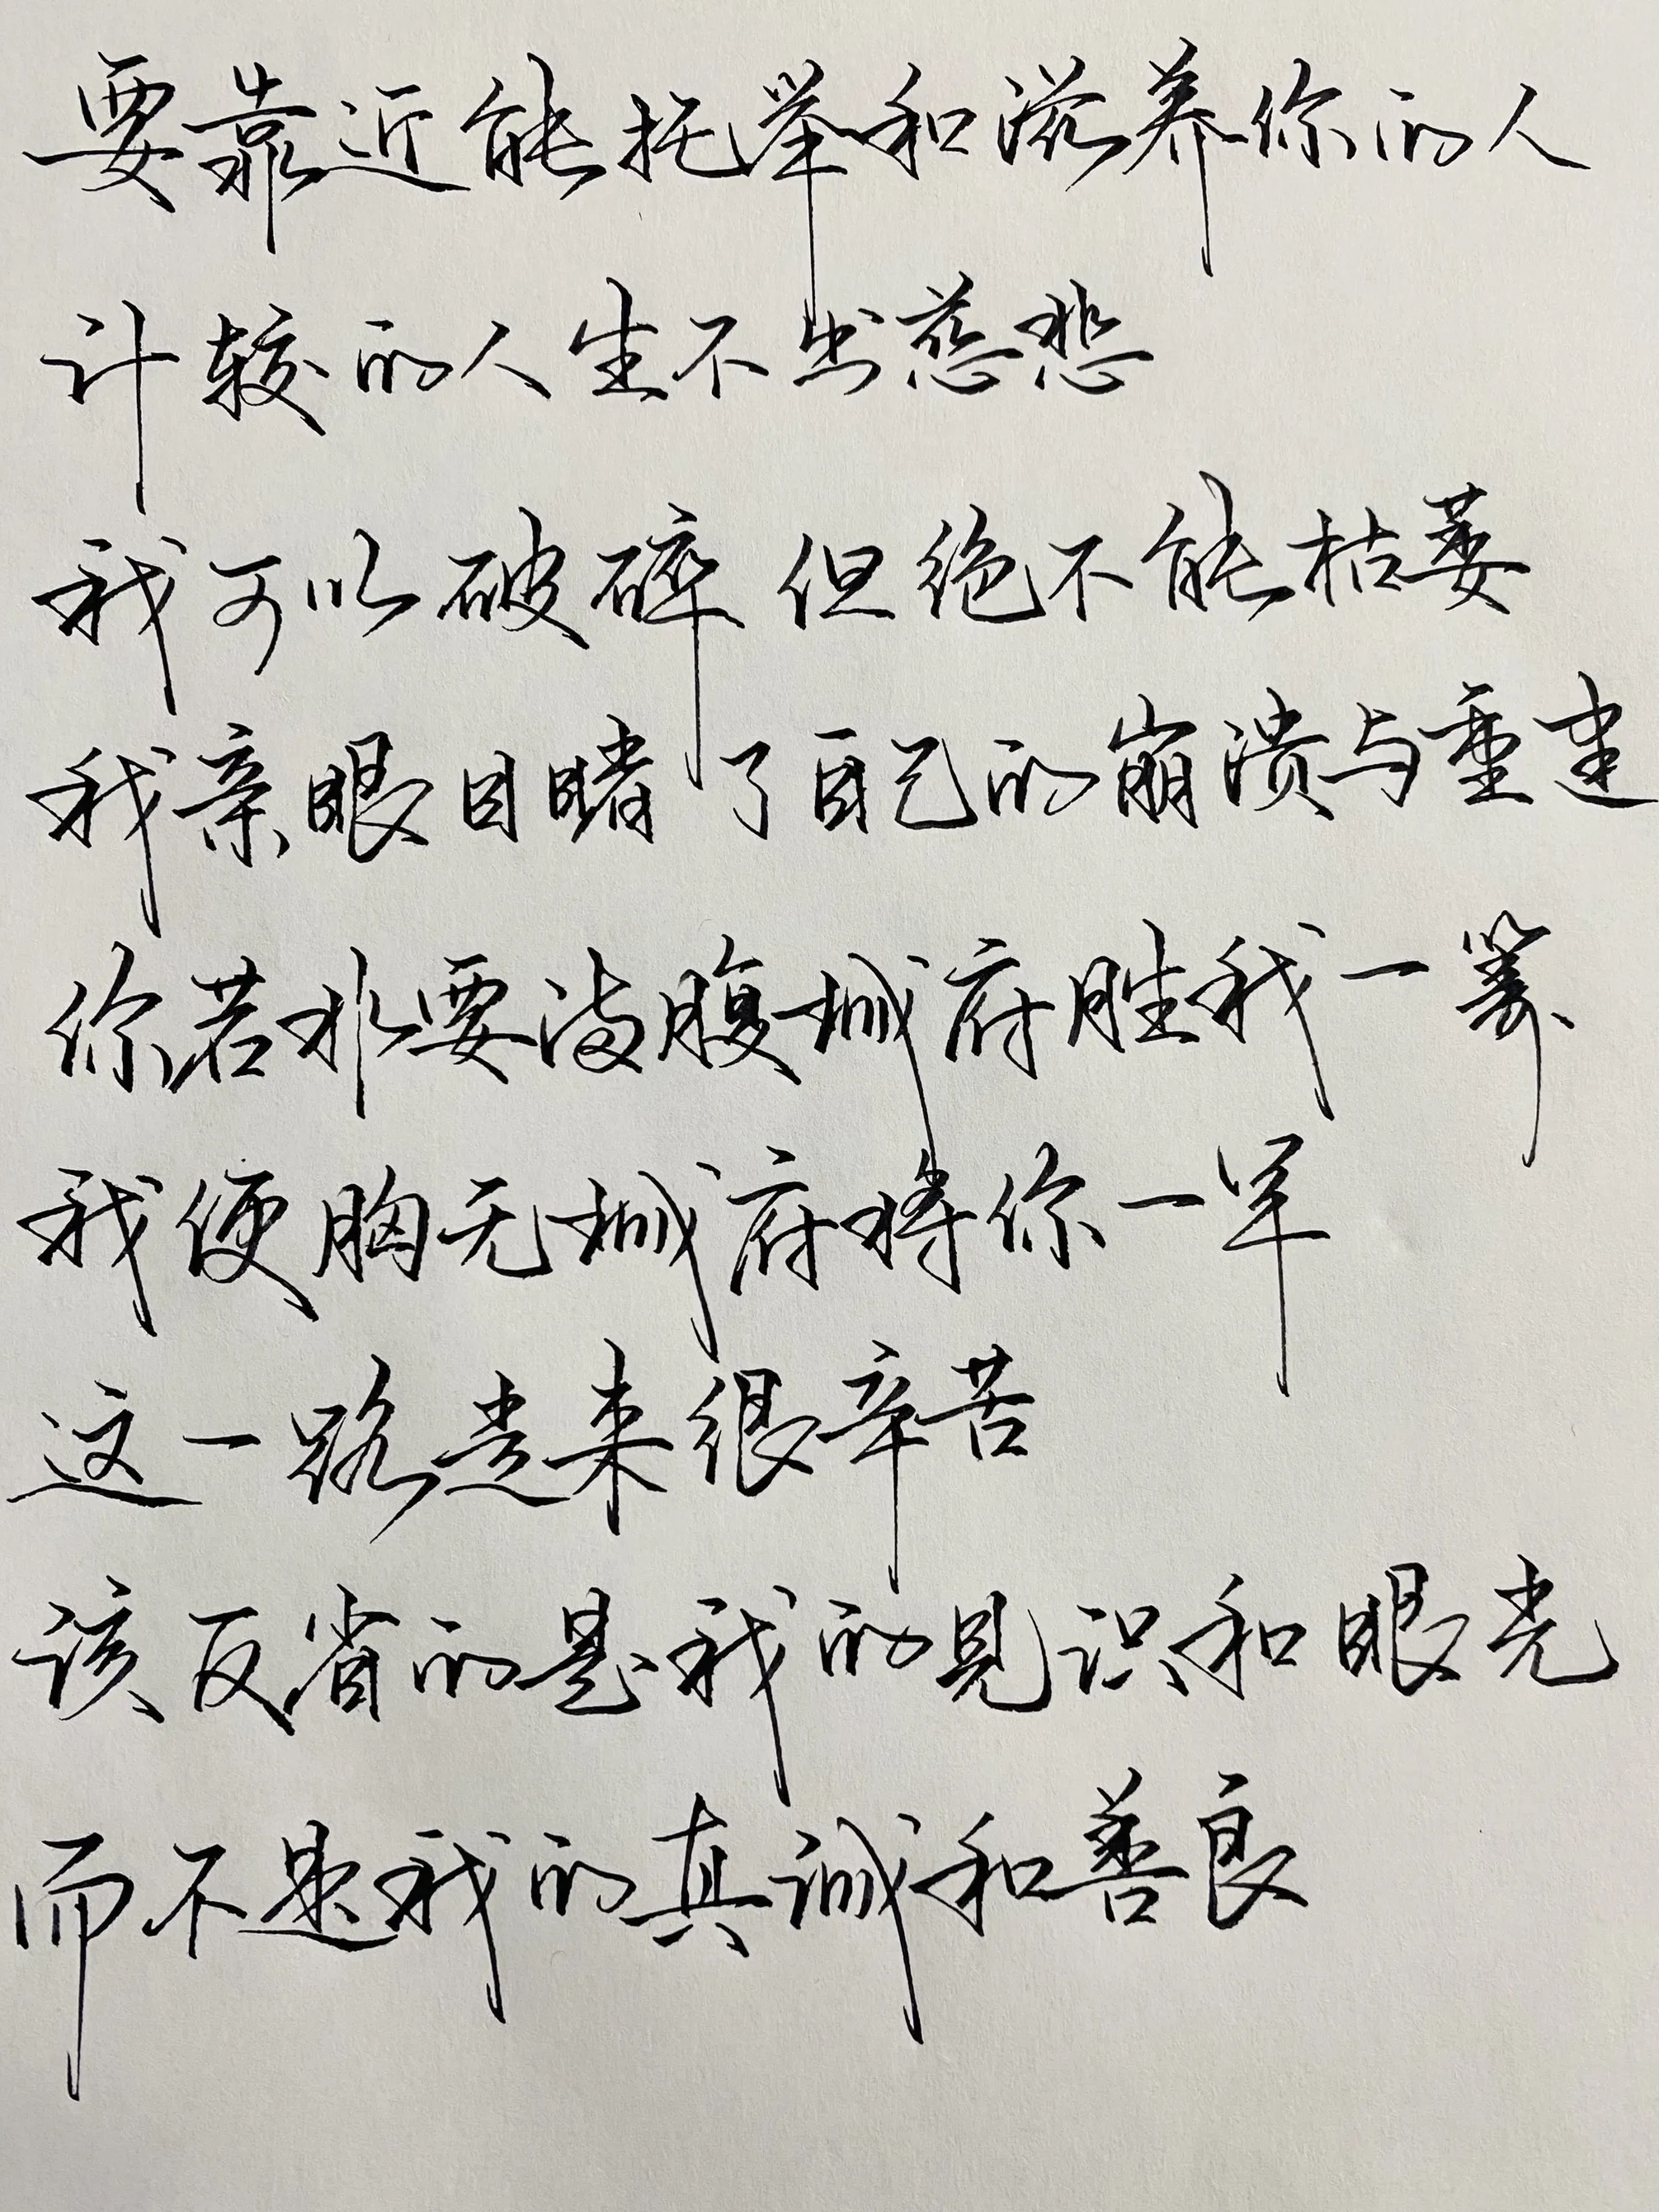 要靠近能托举和滋养你的人
计较的人生不出慈悲
我可以破碎 但绝不能枯萎
我亲眼目睹了自己的崩溃与重建
你若非要满腹城府胜我一筹
我便胸无城府将你一军
这一路走来很辛苦
该反省的是我的见识和眼光
而不是我的真诚和善良